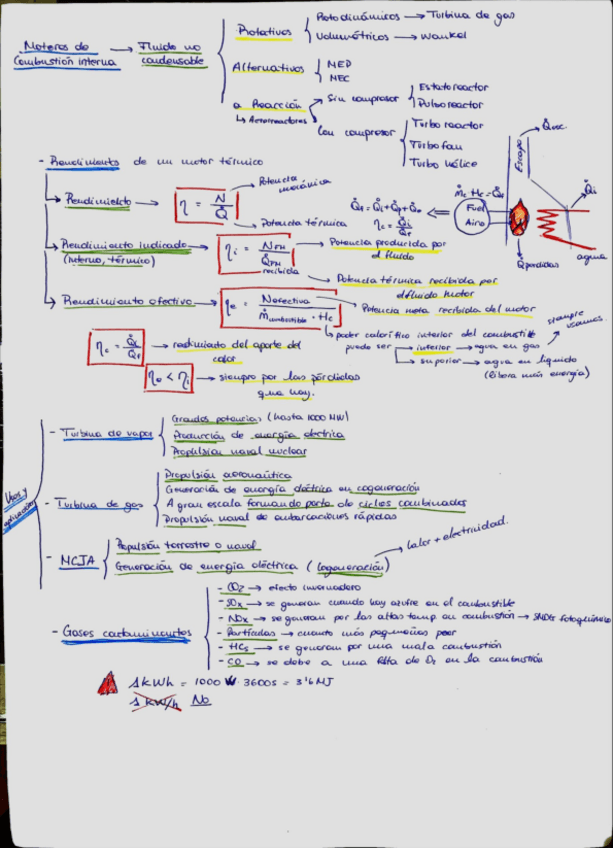 Motores de Combustión interna → Fluido no condensable
Rotativos
Rotodinámicos → Turbina de gas
Volumétricos → Wankel
Alternativos
MEP
MEC
a Reacción
↳ Aerorreactores
Sin compresor
Estatoreactor
Pulsoreactor
Con compresor
Turbo reactor
Turbo fan
Turbo hélice
- Rendimientos de un motor térmico
→ Rendimiento → η = N / Q̇
Potencia mecánica
Potencia térmica
→ Rendimiento indicado → ηi = NFM / Q̇FM
(interno, térmico)
recibida
→ Potencia producida por el fluido
→ Potencia térmica recibida por el fluido motor
→ Rendimiento efectivo → ηe = Nefectiva / ṁcombustible · Hc
Potencia neta recibida del motor
↳ poder calorífico inferior del combustible
puede ser → inferior → agua en gas
siempre usamos
→ superior → agua en líquido
(libera más energía)
Escape
Q̇esc
ṁc · Hc = Q̇f
Fuel
Aire
Q̇i
Q̇perdidas
agua
ηc = Q̇i / Q̇f → rendimiento del aporte del calor
ηe < ηi → siempre por las pérdidas que hay.
Usos y aplicaciones
- Turbina de vapor
Grandes potencias (hasta 1000 MW)
Producción de energía eléctrica
Propulsión naval nuclear
- Turbina de gas
Propulsión aeronaútica
Generación de energía eléctrica en cogeneración
A gran escala formando parte de ciclos combinados
Propulsión naval de embarcaciones rápidas
- MCIA
Propulsión terrestre o naval
Generación de energía eléctrica (cogeneración)
→ Calor + electricidad.
- Gases contaminantes
- CO2 → efecto invernadero
- SOx → se generan cuando hay azufre en el combustible
- NOx → se generan por las altas temp en combustión → SMOG fotoquímico
- Partículas → cuanto más pequeñas peor
- HCs → se generan por una mala combustión
- CO → se debe a una falta de O2 en la combustión
1 kWh = 1000 W · 3600s = 3'6 MJ
1 kW/h No